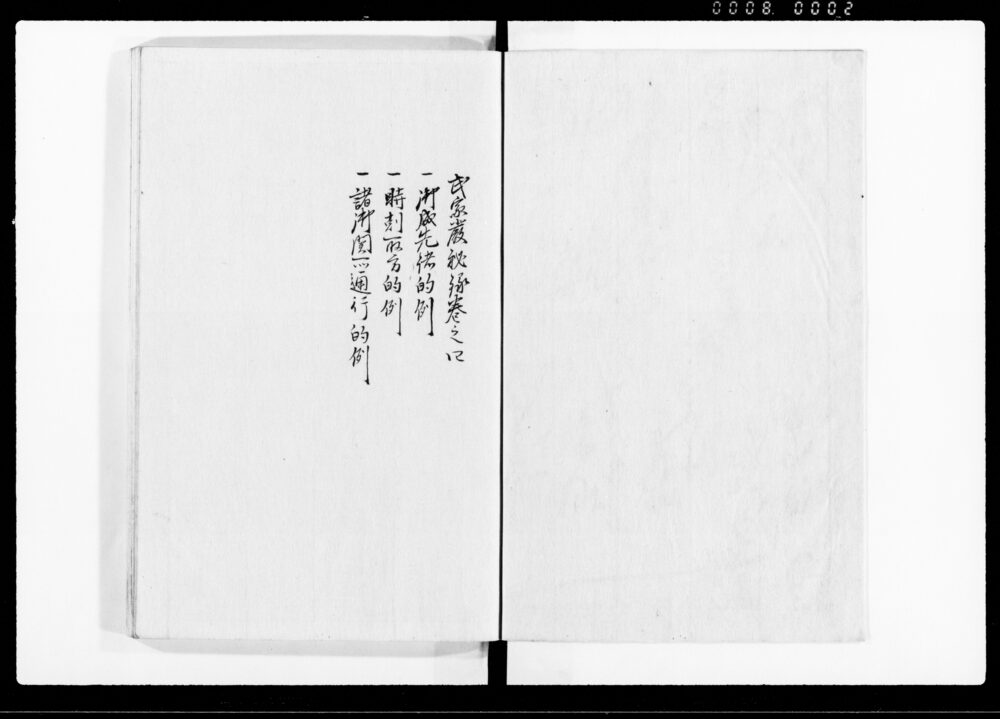 0008 0002
武家厳秘録巻之四
一御成先供的例
一時刻取方的例
一諸御関所通行的例